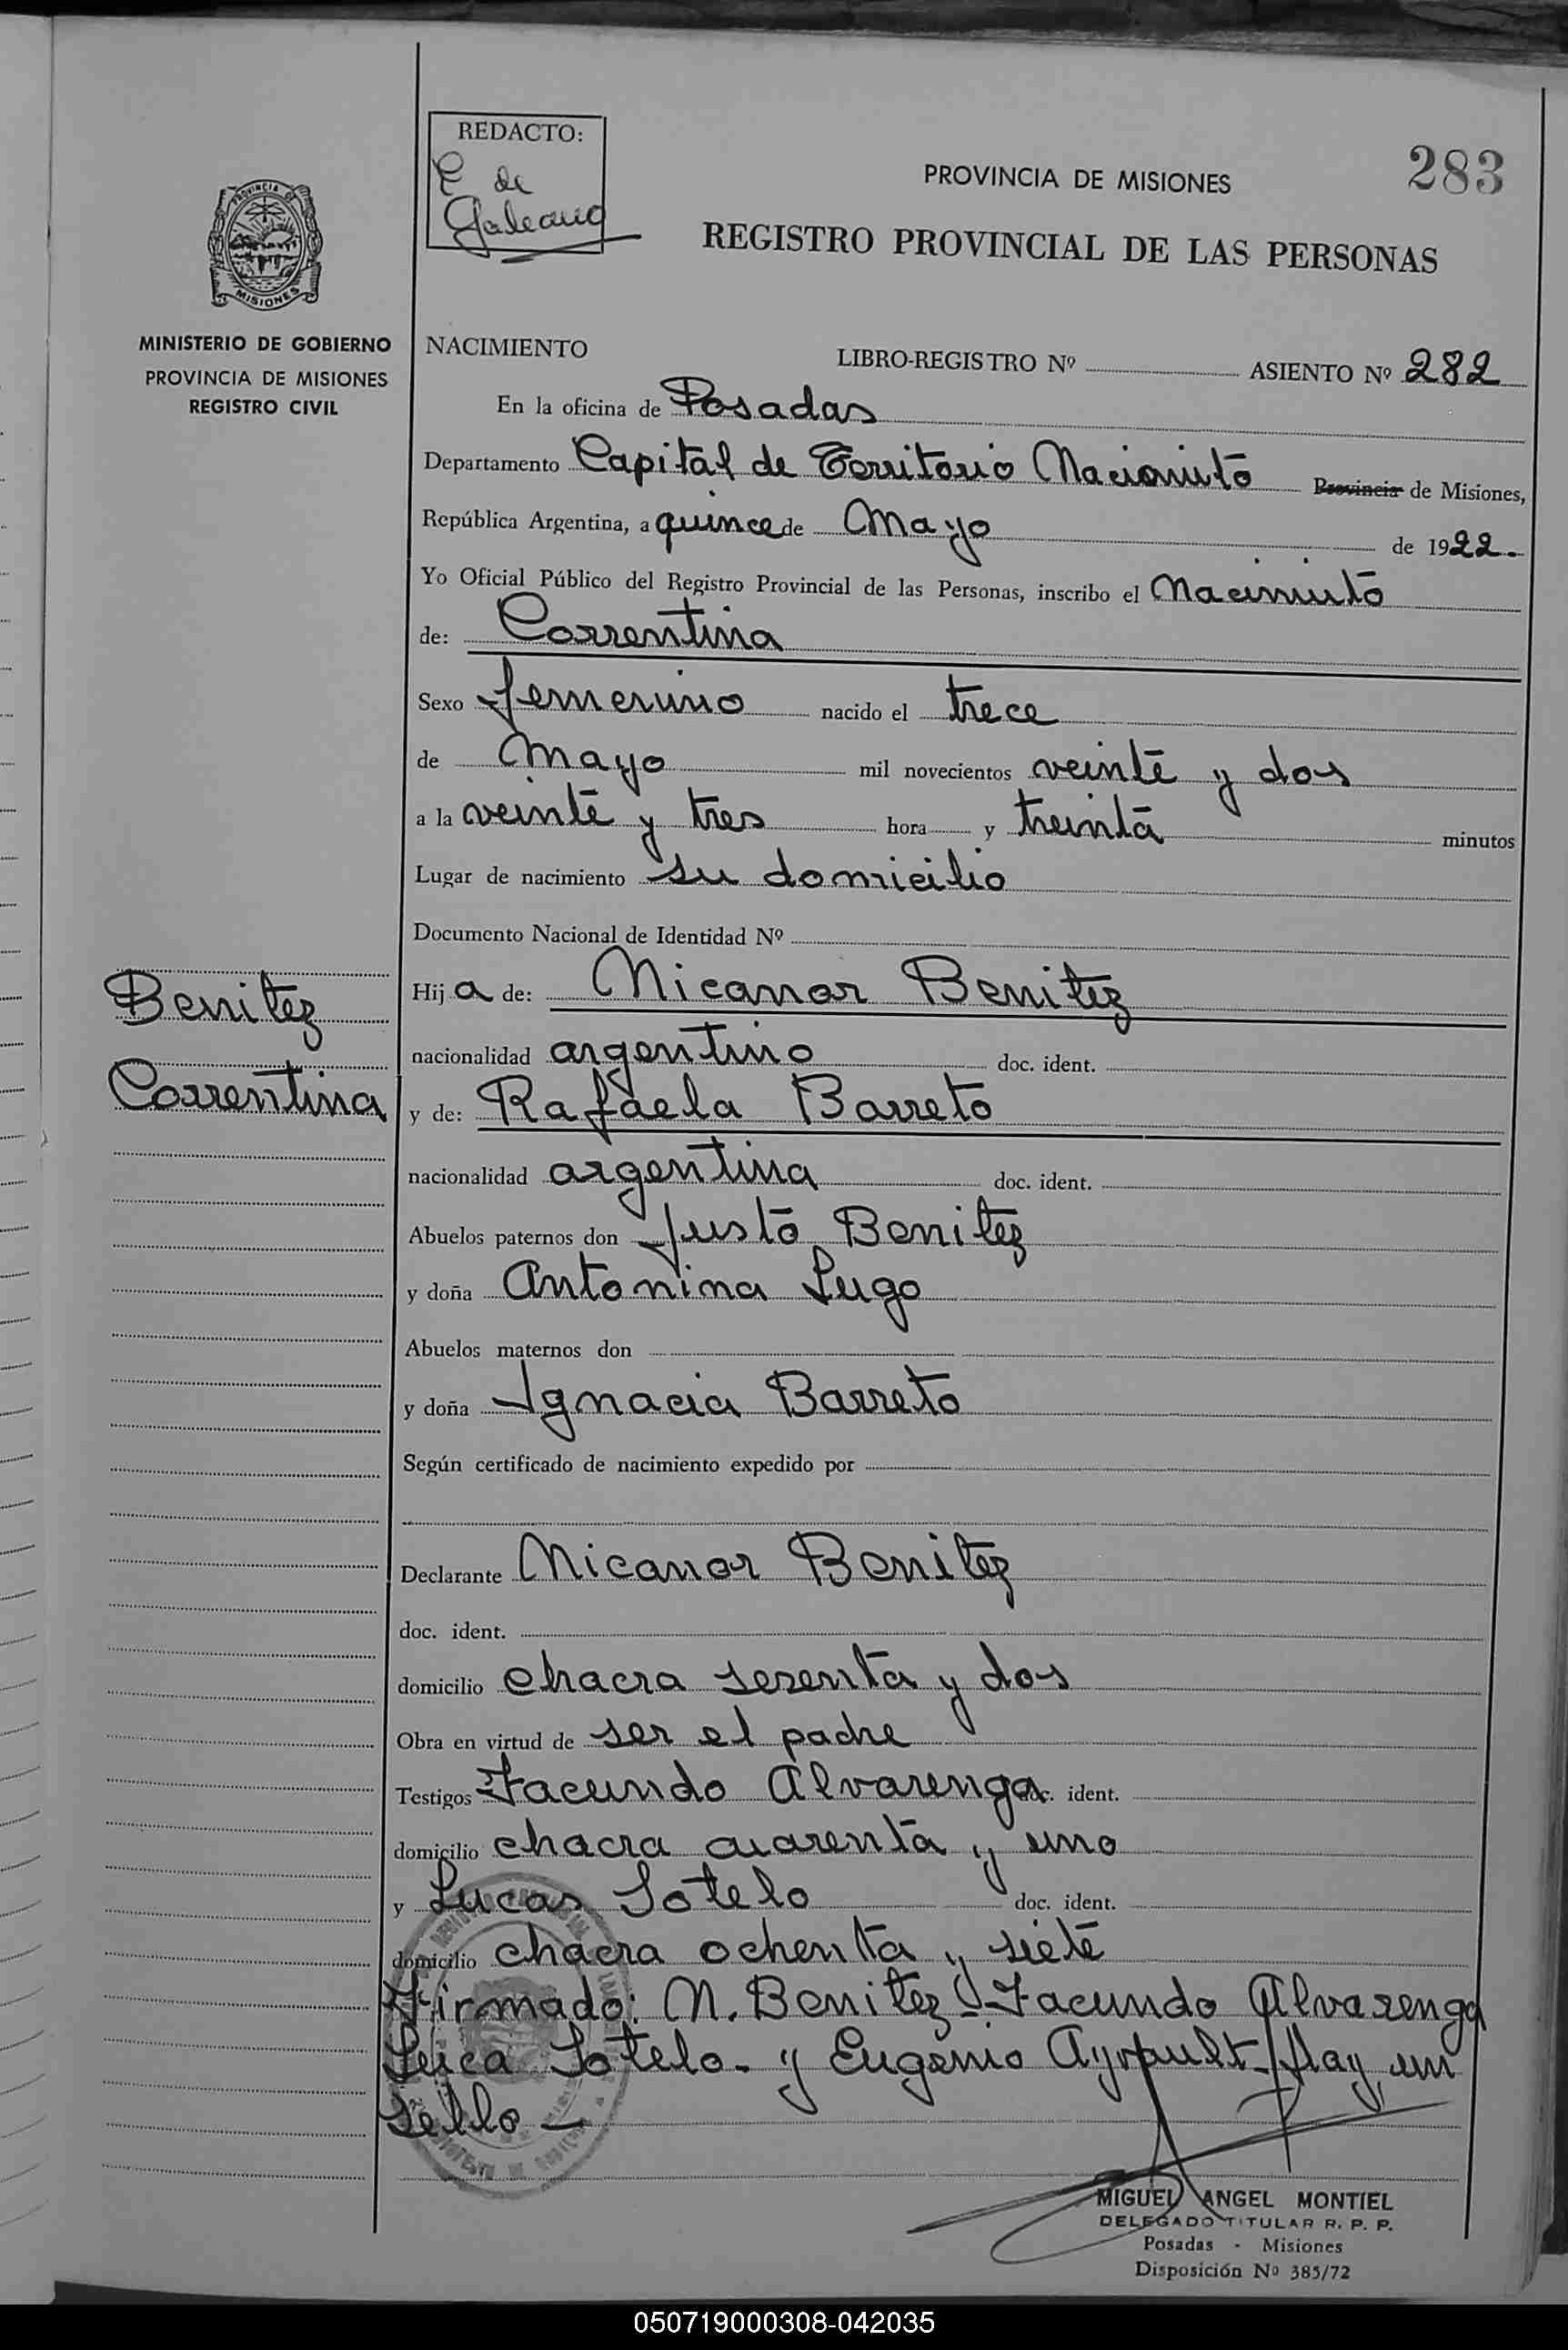 REDACTO:
E de
Galeano
PROVINCIA DE MISIONES
283
REGISTRO PROVINCIAL DE LAS PERSONAS
PROVINCIA DE
MISIONES
MINISTERIO DE GOBIERNO
PROVINCIA DE MISIONES
REGISTRO CIVIL
NACIMIENTO
LIBRO-REGISTRO Nº ASIENTO Nº 282
En la oficina de Posadas
Departamento Capital de Territorio Provincia de Misiones,
República Argentina, a quince de Mayo de 1922.-
Yo Oficial Público del Registro Provincial de las Personas, inscribo el Nacimiento
de: Correntina
Sexo femenino nacido el trece
de Mayo mil novecientos veinte y dos
a la veinte y tres hora y treinta minutos
Lugar de nacimiento su domicilio
Documento Nacional de Identidad Nº
Benitez
Correntina
Hija de: Nicanor Benitez
nacionalidad argentino doc. ident.
y de: Rafaela Barreto
nacionalidad argentina doc. ident.
Abuelos paternos don Justo Benitez
y doña Antonina Lugo
Abuelos maternos don
y doña Ignacia Barreto
Según certificado de nacimiento expedido por
Declarante Nicanor Benitez
doc. ident.
domicilio chacra sesenta y dos
Obra en virtud de ser el padre
Testigos Facundo Alvarenga doc. ident.
domicilio chacra cuarenta y uno
y Lucas Sotelo doc. ident.
domicilio chacra ochenta y siete
Firmado: N. Benitez - Facundo Alvarenga
Luca Sotelo - y Eugenio Ayrault - Hay un
sello -
MIGUEL ANGEL MONTIEL
DELEGADO TITULAR R. P. P.
Posadas - Misiones
Disposición Nº 385/72
050719000308-042035